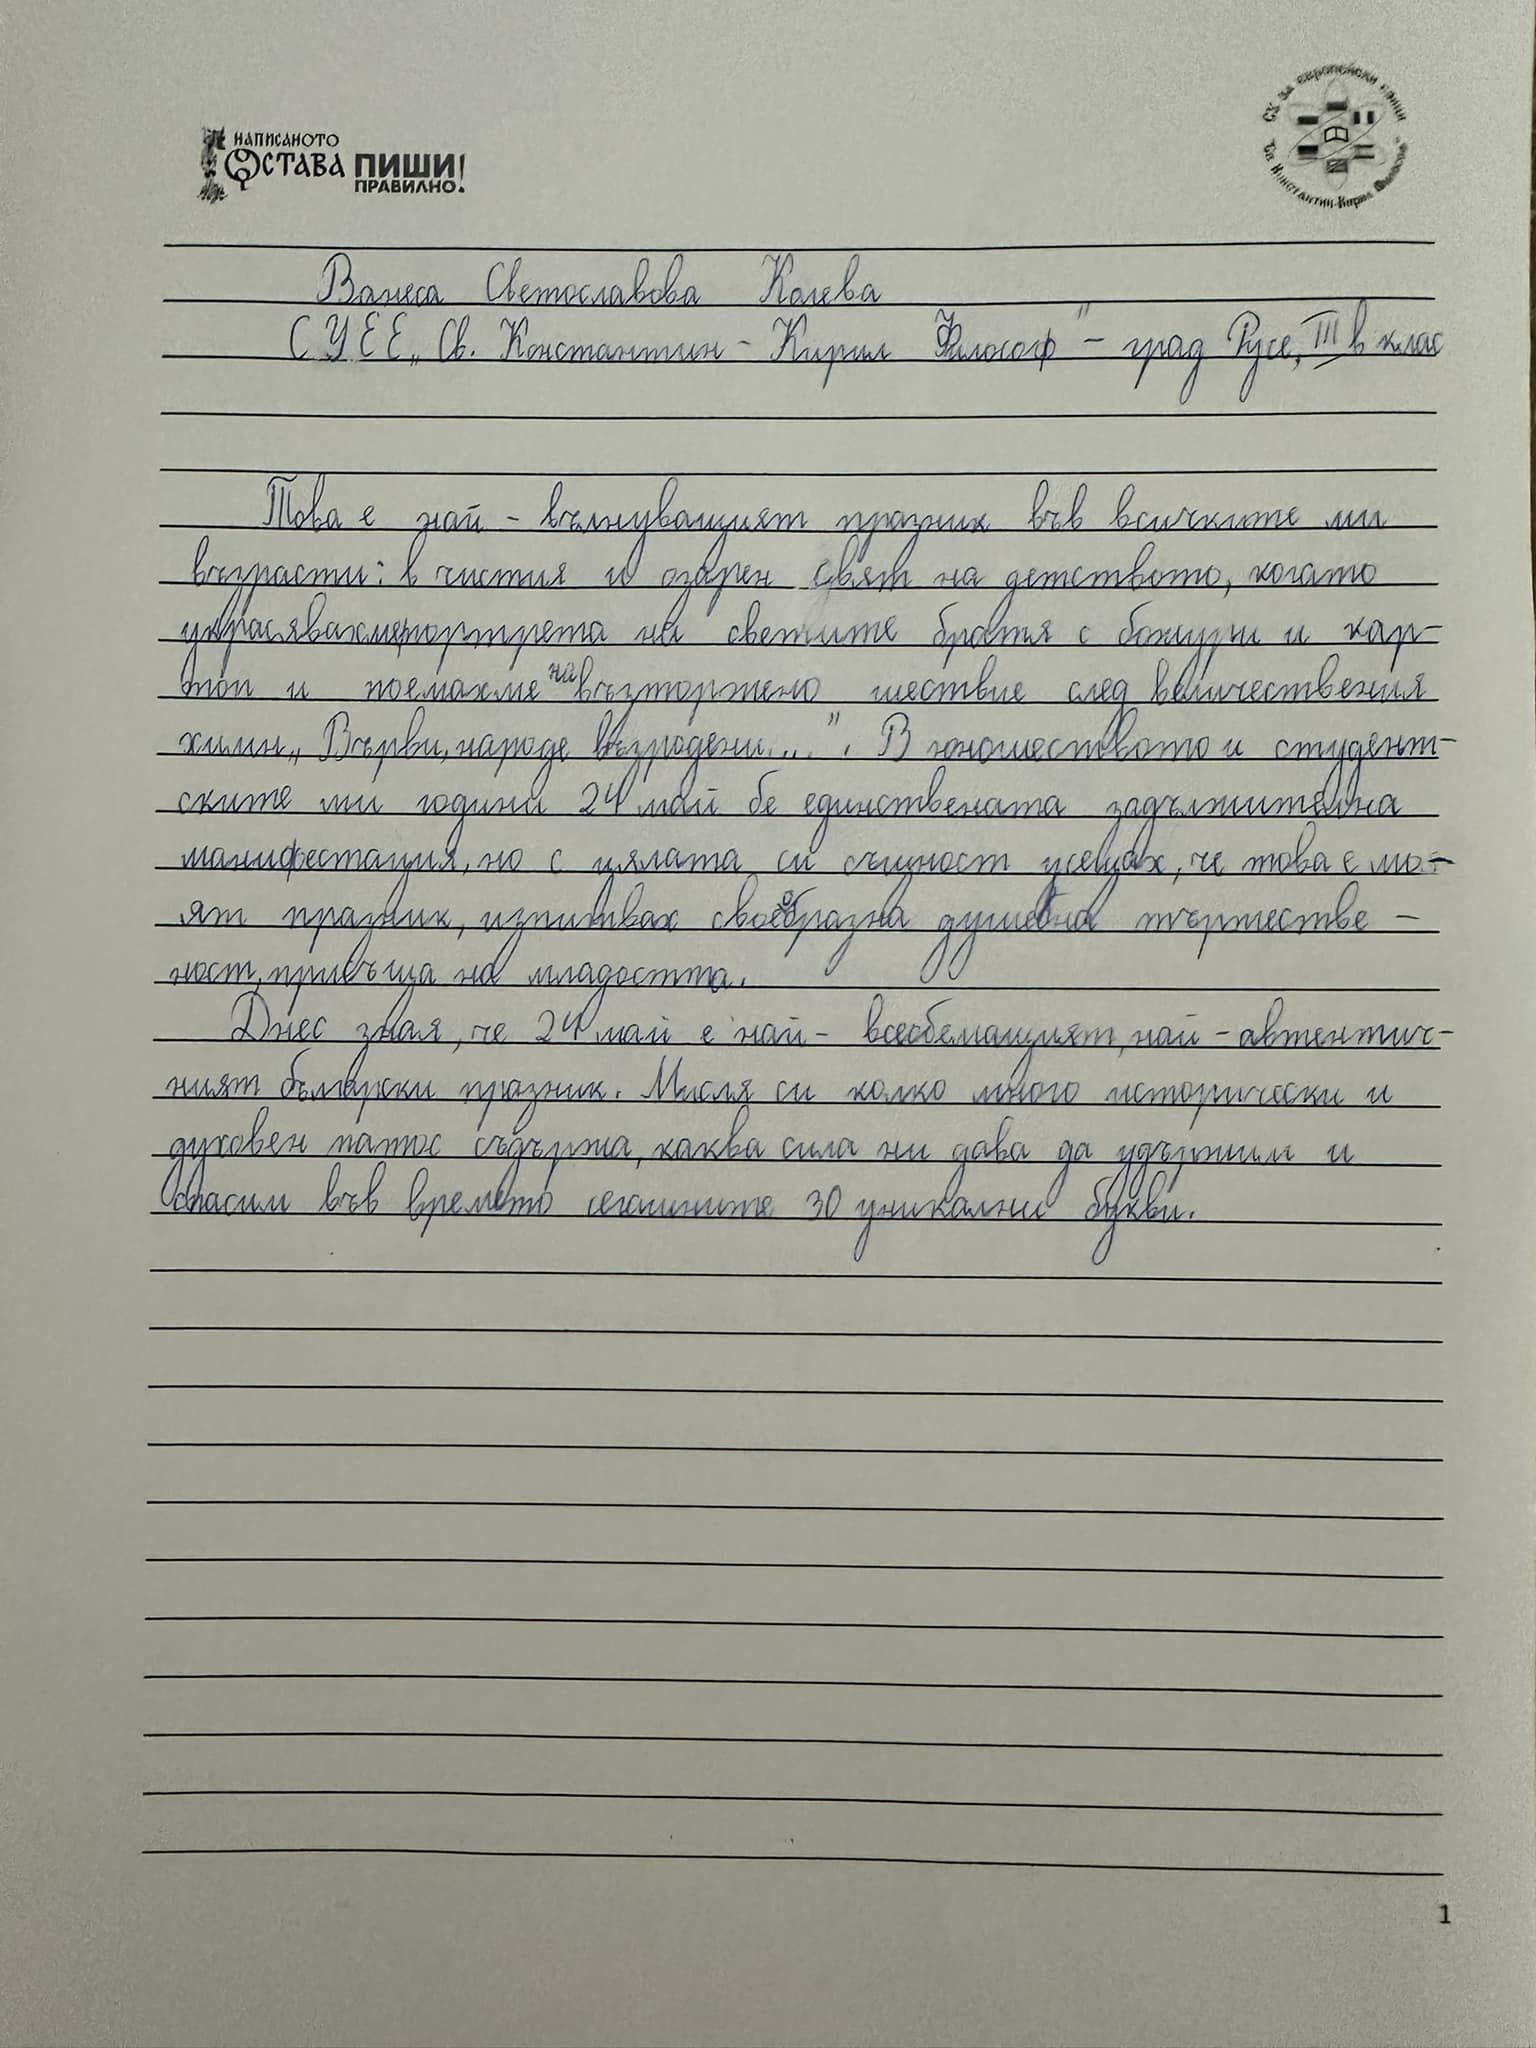 НАПИСАНОТО
ОСТАВА ПИШИ
ПРАВИЛНО!
СУ за европейски езици
"Св. Константин-Кирил Философ"
Ванеса Светославова Колева
СУЕЕ „Св. Константин - Кирил Философ" - град Русе, III в клас
Това е най - вълнуващият празник във всичките ми
възрасти: в чистия и озарен свят на детството, когато
украсявахме портрета на светите братя с божури и кар-
топ и поемахме на възторжено шествие след величествения
химн „ Върви, народе възродени...". В юношеството и студент-
ските ми години 24 май бе единствената задължителна
манифестация, но с цялата си същност усещах, че това е мо-
ят празник, изпитвах своеобразна душевна тържестве -
ност, присъща на младостта.
Днес зная, че 24 май е най - всеобемащият, най - автентич-
ният български празник. Мисля си колко много исторически и
духовен патос съдържа, каква сила ни дава да удържим и
спасим във времето сегашните 30 уникални букви.
1